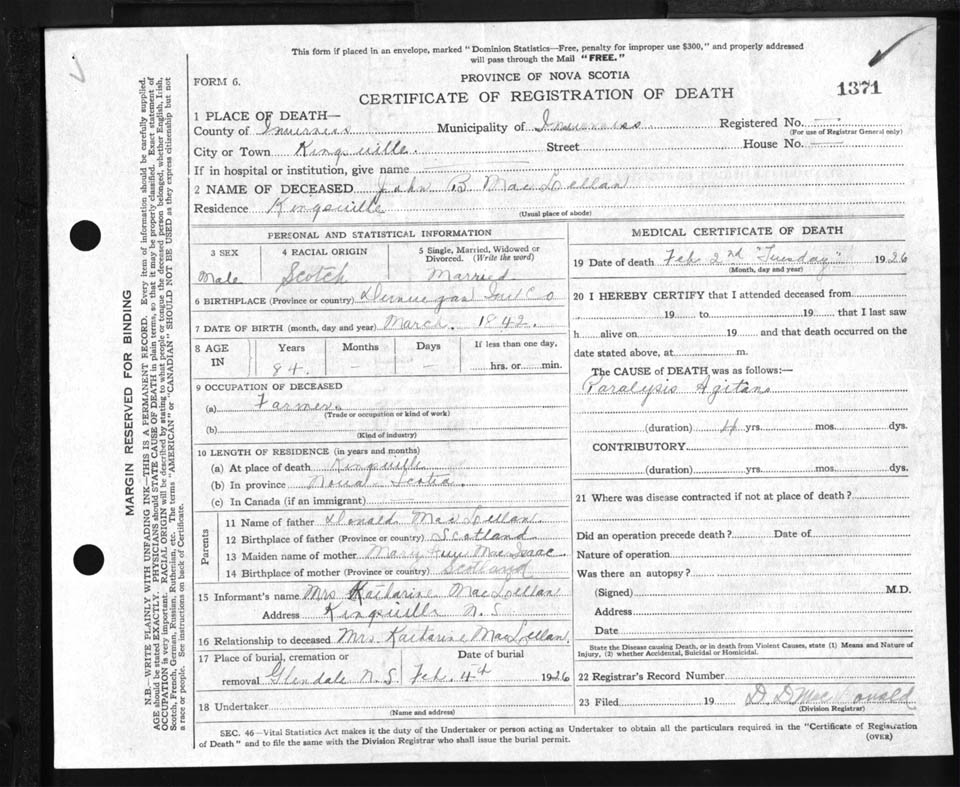 This form if placed in an envelope, marked "Dominion Statistics—Free, penalty for improper use $300," and properly addressed
will pass through the Mail "FREE."
FORM 6.
PROVINCE OF NOVA SCOTIA
CERTIFICATE OF REGISTRATION OF DEATH
1371
1 PLACE OF DEATH—
County of Inverness Municipality of Inverness Registered No.
(For use of Registrar General only)
City or Town Kingsville. Street House No.
If in hospital or institution, give name
2 NAME OF DECEASED John B. MacLellan
Residence Kingsville
(Usual place of abode)
PERSONAL AND STATISTICAL INFORMATION
3 SEX 4 RACIAL ORIGIN 5 Single, Married, Widowed or
Divorced. (Write the word)
Male Scotch Married
6 BIRTHPLACE (Province or country) Inv Co
7 DATE OF BIRTH (month, day and year) March. 1842.
8 AGE IN Years Months Days If less than one day,
84. — — hrs. or min.
9 OCCUPATION OF DECEASED
(a) Farmer.
(Trade or occupation or kind of work)
(b)
(Kind of industry)
10 LENGTH OF RESIDENCE (in years and months)
(a) At place of death Kingsville
(b) In province Nova Scotia.
(c) In Canada (if an immigrant)
Parents
11 Name of father Donald MacLellan.
12 Birthplace of father (Province or country) Scotland
13 Maiden name of mother Mary MacIsaac
14 Birthplace of mother (Province or country) Scotland
15 Informant's name Mrs Katharine MacLellan
Address Kingsville N.S
16 Relationship to deceased Mrs. Katharine MacLellan.
17 Place of burial, cremation or Date of burial
removal Glendale N.S. Feb. 4th 1926
18 Undertaker
(Name and address)
MEDICAL CERTIFICATE OF DEATH
19 Date of death Feb 2nd "Tuesday" 1926
(Month, day and year)
20 I HEREBY CERTIFY that I attended deceased from
19 to 19 that I last saw
h alive on 19 and that death occurred on the
date stated above, at m.
The CAUSE of DEATH was as follows:—
Paralysis Agitans
(duration) 4 yrs. mos. dys.
CONTRIBUTORY
(duration) yrs. mos. dys.
21 Where was disease contracted if not at place of death?
Did an operation precede death? Date of
Nature of operation
Was there an autopsy?
(Signed) M.D.
Address
Date
State the Disease causing Death, or in death from Violent Causes, state (1) Means and Nature of
Injury, (2) whether Accidental, Suicidal or Homicidal.
22 Registrar's Record Number
23 Filed 19 D. D MacDonald
(Division Registrar)
SEC. 46—Vital Statistics Act makes it the duty of the Undertaker or person acting as Undertaker to obtain all the particulars required in the "Certificate of Registration
of Death" and to file the same with the Division Registrar who shall issue the burial permit.
(OVER)
MARGIN RESERVED FOR BINDING
N.B.—WRITE PLAINLY WITH UNFADING INK—THIS IS A PERMANENT RECORD. Every item of information should be carefully supplied.
AGE should be stated EXACTLY. PHYSICIANS should STATE CAUSE OF DEATH in plain terms, so that it may be properly classified. Exact statement of
OCCUPATION is very important. RACIAL ORIGIN will be described by stating to what people or tongue the deceased person belonged, whether English, Irish,
Scotch, French, German, Russian, Ruthenian, etc. The terms "AMERICAN" or "CANADIAN" SHOULD NOT BE USED as they express citizenship but not
a race or people. See instructions on back of Certificate.